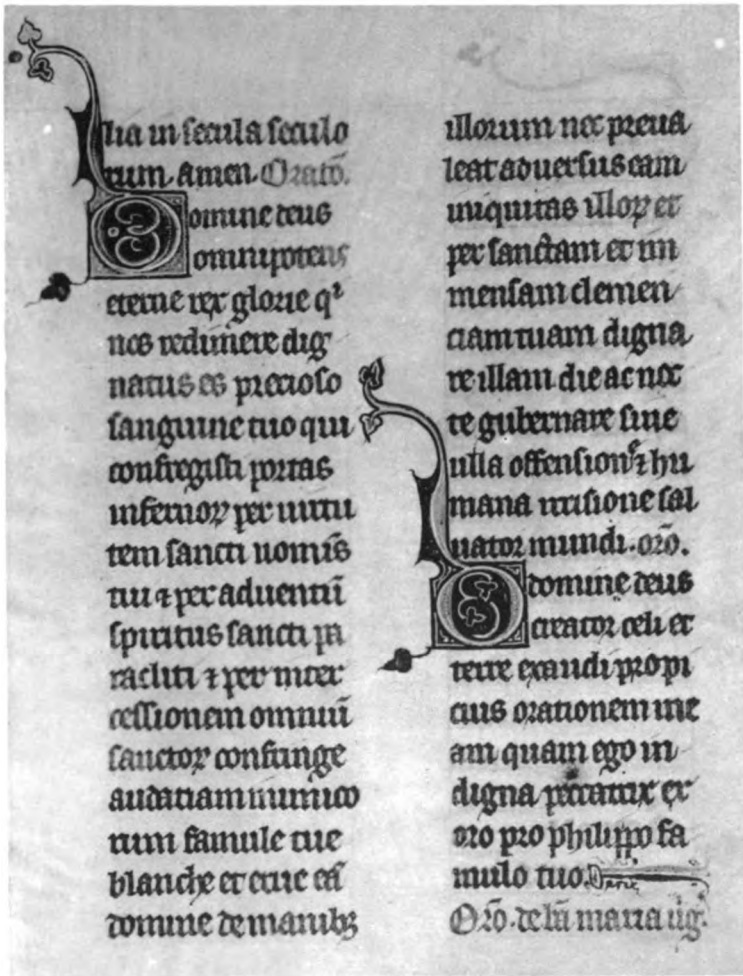 lia in secula seculo
rum amen. Oratō.
Domine deus
omnipotens
eterne rex glorie qͥ
nos redimere dig
natus es precioso
sanguine tuo qui
confregisti portas
infernoꝝ per uirtu
tem sancti nomīs
tui ⁊ per aduentū
spiritus sancti pa
racliti ⁊ per inter
cessionem omniū
sanctoꝝ confringe
audatiam inimico
rum famule tue
blanche et erue eā
domine de manibꝫ
illorum nec preua
leat aduersus eam
iniquitas illoꝝ et
per sanctam et im
mensam clemen
ciam tuam digna
re illam die ac noc
te gubernare sine
ulla offensioně ⁊ hu
mana irrisione sal
uator mundi. oro̅.
O domine deus
creator celi et
terre exaudi propi
cius orationem me
am quam ego in
digna peccatrix ex
oro pro philippo fa
mulo tuo.
Oro̅. de la̅ maria uig.